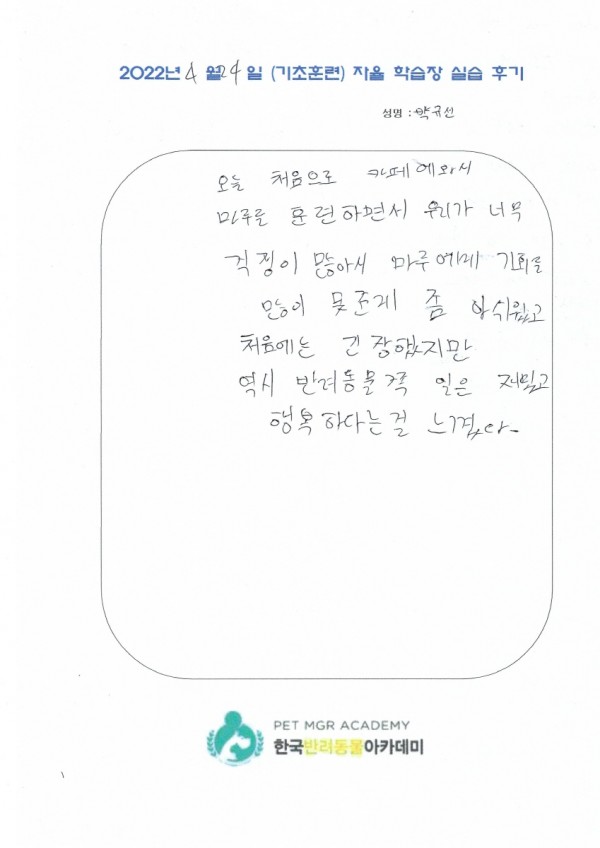 2022년 4 월 24 일 (기초훈련) 자율 학습장 실습 후기
성명 : 박규선
오늘 처음으로 카페에와서
마루를 훈련하면서 우리가 너무
걱정이 많아서 마루에게 기회를
많이 못준게 좀 아쉬웠고
처음에는 긴장했지만
역시 반려동물쪽 일은 재밌고
행복하다는걸 느꼈다.
PET MGR ACADEMY
한국반려동물아카데미